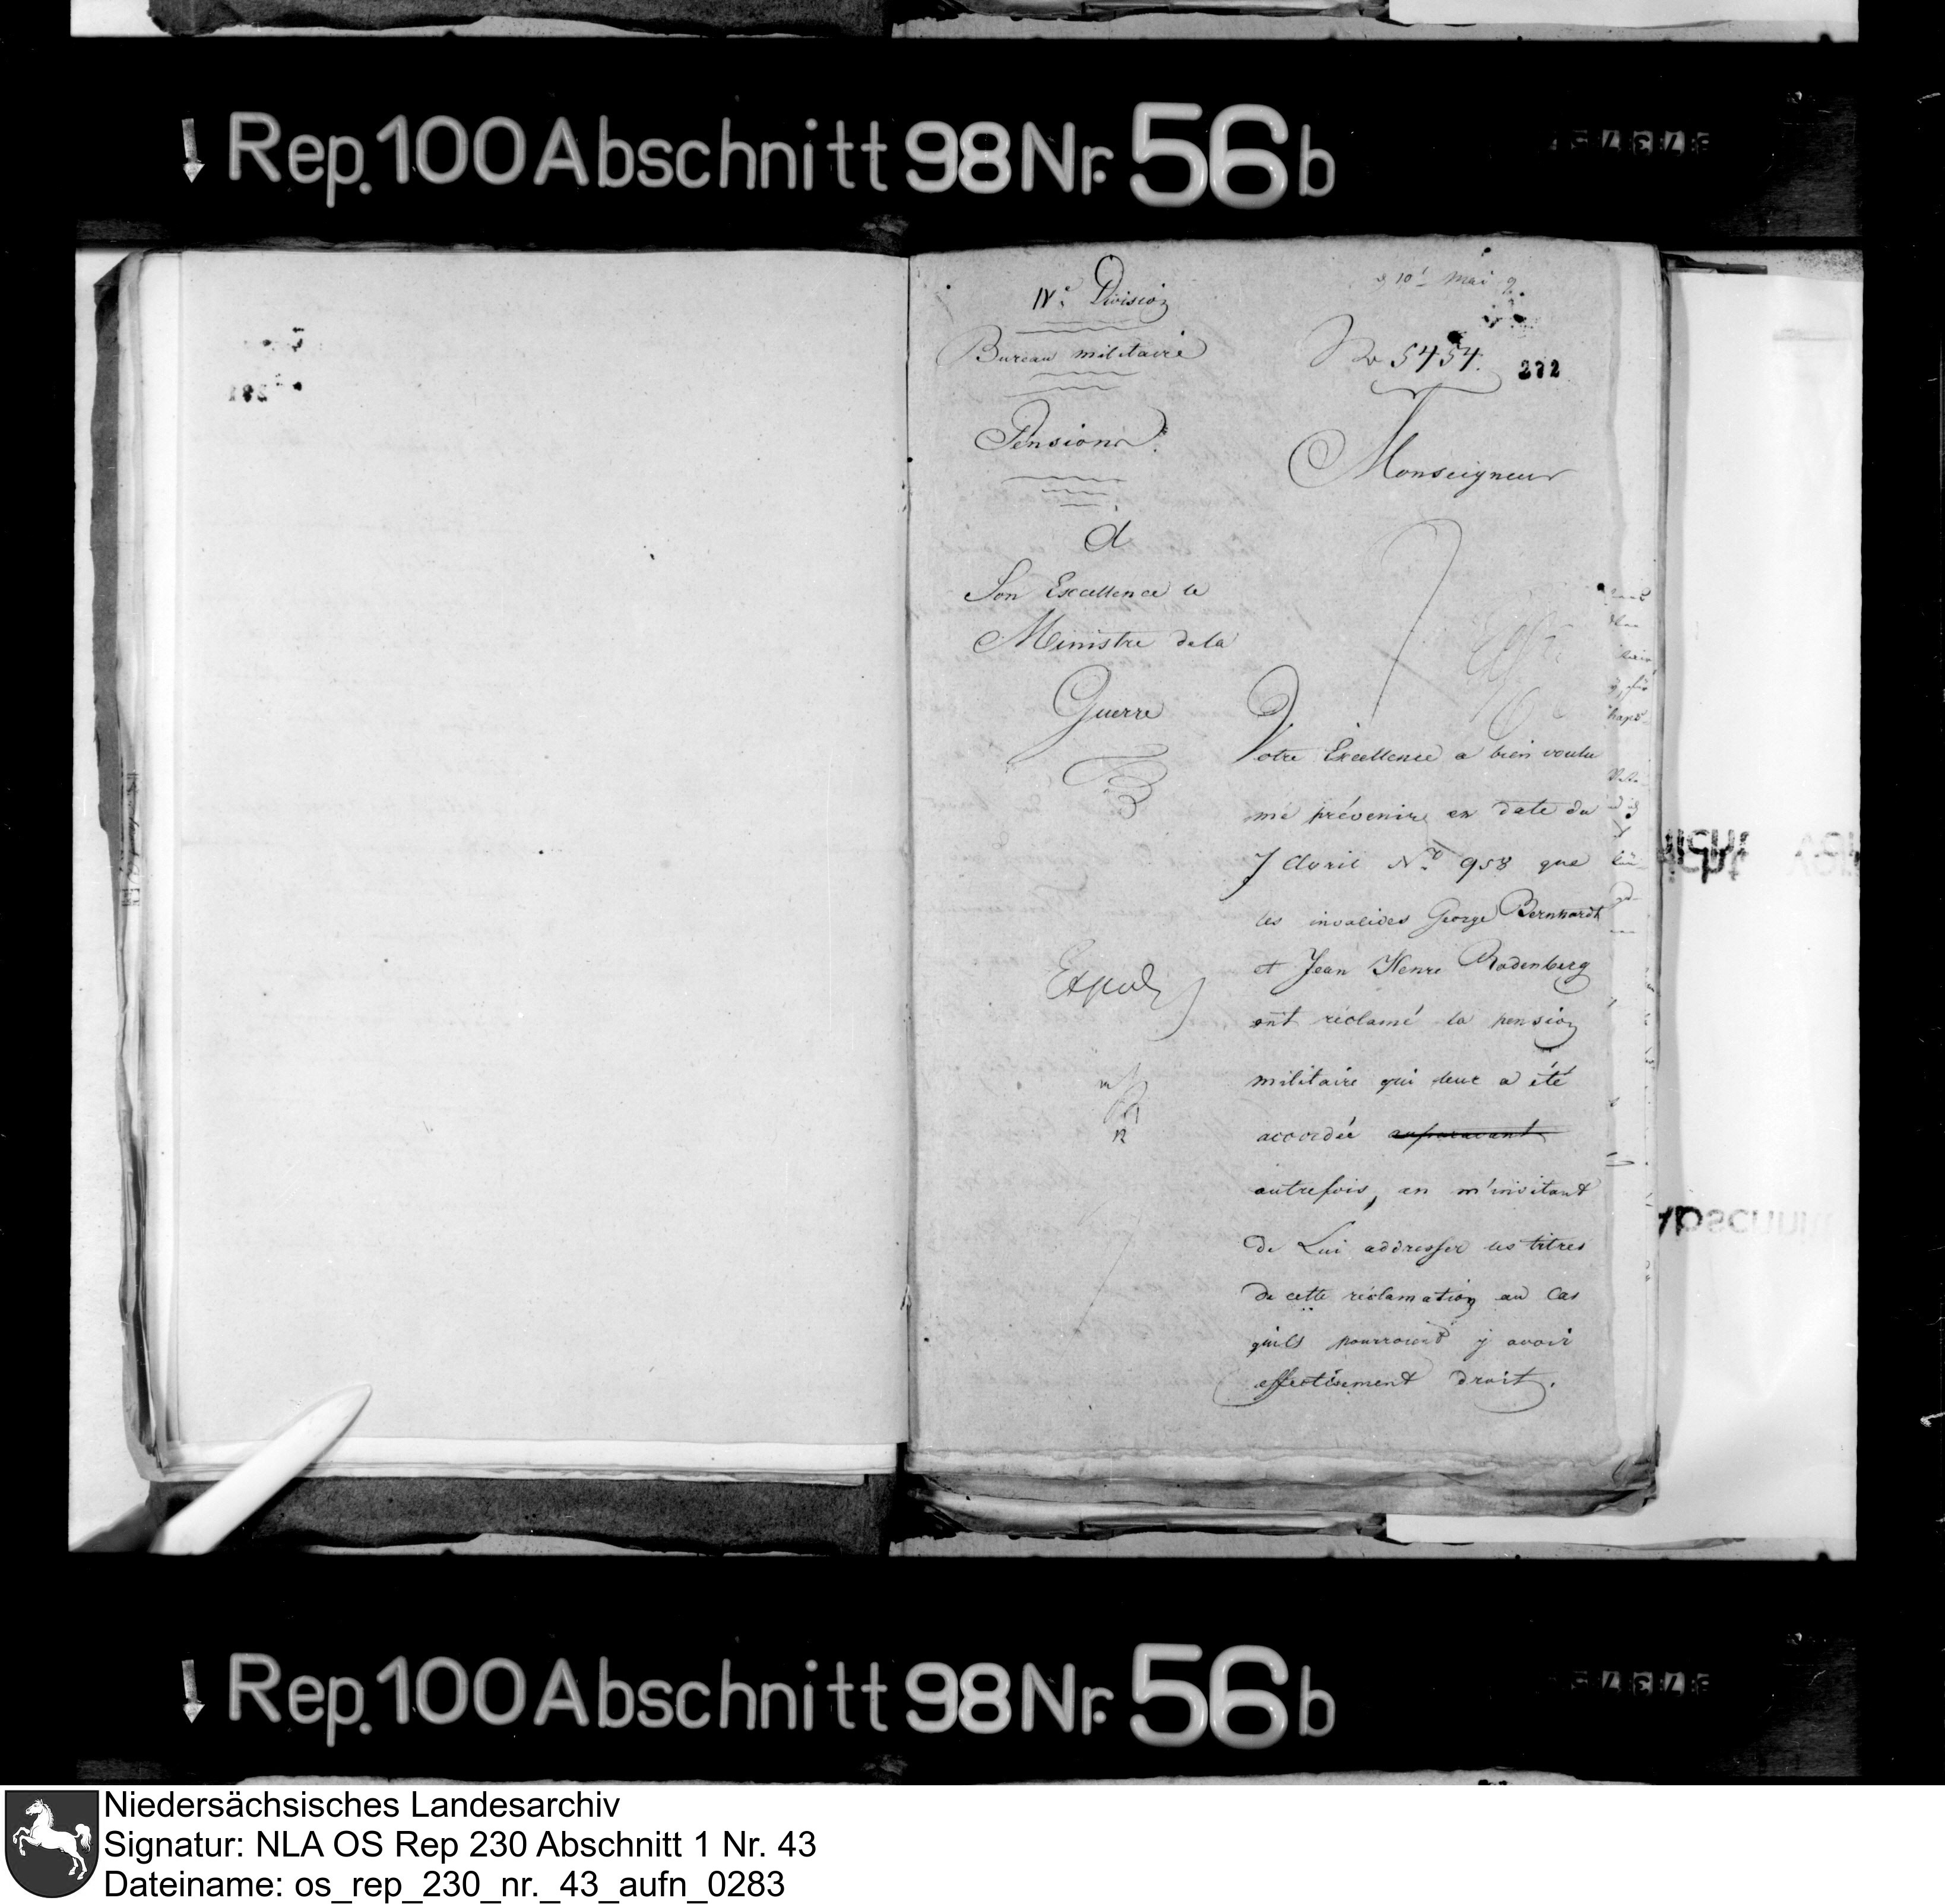 Rep. 100 Abschnitt 98 Nr. 56 b
IV.e Division
Bureau militaire
Pensions.
à
Son Excellence le
Ministre de la
Guerre
Exped
10 Mai
No 5454.
272
Monseigneur
Votre Excellence a bien voulu
me prévenir en date du
7 Avril No. 958 que
les invalides George Bernhardt
et Jean Henri Rodenberg
ont réclamé la pension
militaire qui leur a été
accordée auparavant
autrefois, en m'invitant
de Lui addresser les titres
de cette réclamation au Cas
qu'ils pourroient y avoir
effectivement droit.
Rep. 100 Abschnitt 98 Nr. 56 b
Niedersächsisches Landesarchiv
Signatur: NLA OS Rep 230 Abschnitt 1 Nr. 43
Dateiname: os_rep_230_nr._43_aufn_0283